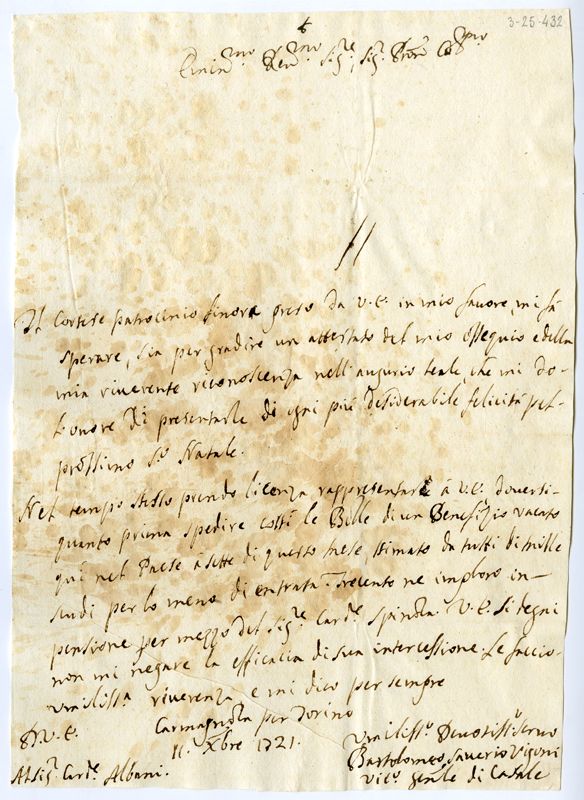 3-25-432
Emin.mo Rev.mo Sig.re, Sig. Pron Col.mo
Il Cortese patrocinio finora preso da V.E. in mio favore, mi fà
sperare, sia per gradire un attestato del mio ossequio e della
mia riverente riconoscenza nell'augurio leale, che mi do-
l'onore di presentarle di ogni più desiderabile felicità pel-
prossimo S.o Natale.
Nel tempo stesso prendo licenza rappresentare à V.E. doversi-
quanto prima spedire costì le Bolle di un Benefizio vacato
quì nel Paese à sette di questo mese, stimato da tutti di mille
scudi per lo meno di entrata. Trecento ne imploro in-
pensione per mezzo del Sig.re Card.e Spinola. V.E. si degni
non mi negare la efficacia di sua intercessione. Le faccio-
umiliss.a riverenza e mi dico per sempre
D. V.E.
Carmagnola per Torino
11. Xbre 1721.
Umiliss.o Devotiss.o Servo
Bartolomeo Saverio Vigoni
Vic.o gen.le di Casale
Al Sig.r Card.e Albani.